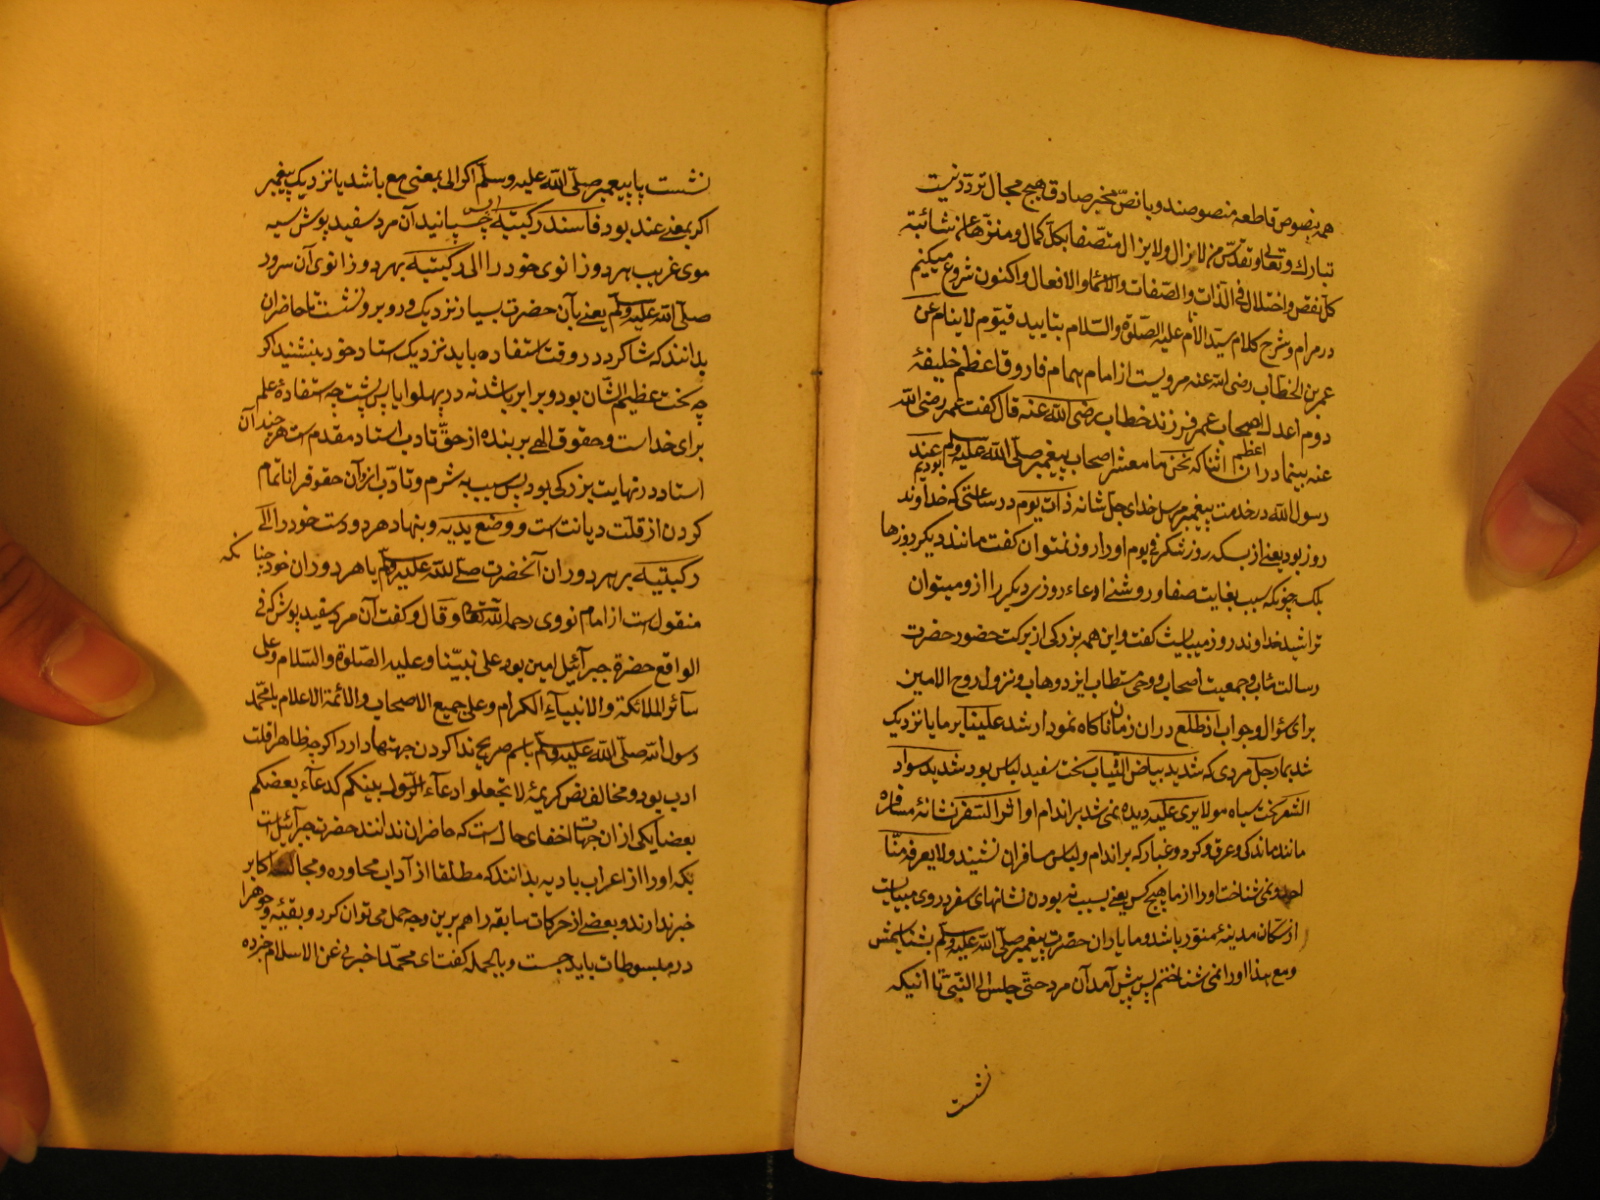 همه بنصوص قاطعه منصوصند و با نصّ مخبر صادق هیچ مجال تردّد نیست
تبارك وتعالی وتقدّس من لا یزال ولا یزال متّصفا بکل کمال ومنزّها عن شائبة
کل نقص واختلال فی الذّات والصّفات والاسماء والافعال واکنون شروع میکنیم
در مرام وشرح کلام سیّد الانام علیه الصّلوة والسّلام بتایید قیّوم لا ینام عن
عمر بن الخطاب رضی الله عنه مرویست از امام همام فاروق اعظم خلیفهٔ
دوم اعدل اصحاب عمر فرزند خطاب رضی الله عنه قال کفت عمر رضی الله
عنه بینما در ان اثنا که نحن ما معشر اصحاب پیغمبر صلّی الله علیه وسلّم عند
اعظم بودیم
رسول الله در خدمت پیغمبر مرسل خدای جل شانه ذات یوم در ساعتی که خداوند
روز بود یعنی از بسکه روز شکرفی بوم اورا روز نمتوان کفت مانند دیکر روزها
بلک چونکه سبب بغایت صفا و روشنے ادعاء روزی دیکر را ازو میتوان
تراشید خداوند روز میبایست کفت و این همه بزرکی از برکت حضور حضرت
رسالت مٔاب و جمعیت اصحاب و وحی مستطاب ایزد وهاب و نزول روح الامین
برای سؤال وجواب اذ طلع در ان زمان ناکاه نمودار شد علینا بر ما یا نزدیک
شد بما رجل مردی که شدید بیاض الثیاب سخت سفید لباس بود شدید سواد
الشعر سخت سیاه مو لا یری علیه دیده نمی شد بر اندام او اثر السّفر نشانهٔ مسافره
مانند ماندکی و عرق و کرد و غبار که بر اندام و لباس مسافران نشیند ولا یعرفه منّا
احد و نمی شناخت اورا از ما هیچ کس یعنی بسبب نه بودن نشانهای سفر در وی میبایست
از سکان مدینهٔ منوّر باشد و ما یاران حضرت پیغمبر صلّی الله علیه وسلّم بشناسیمش
و مع هذا اورا نمی شناختم پس پیش آمد آن مرد حتی جلس الی النّبی تا آنیکه
نشست
نشست با پیغمبر صلّی الله علیه وسلّم اکر الی بمعنی مع باشد یا نزدیک پیغمبر
اکر بمعنے عند بود فاسند رکبتیه پس چسپانید آن مرد سفید پوش سیه
موی غریب هر دو زانوی خود را الی رکبتیه بهر دو زانوی آن سرور
صلّی الله علیه وسلّم یعنے بآن حضرت بسیار نزدیک و روبرو نشست تا حاضران
بدانند که شاکرد در وقت استفاده باید نزدیک استاد خود بنشنید اکر
چه سخت عظیم الشّان بود و برابر باشد نه در پهلو یا پس پشت چه استفادهٔ علم
برای خداست و حقوق الهی بر بنده از حقّ تادب استاد مقدم است هر چند آن
استاد در نهایت بزرکی بود پس بسبب شرم و تادّب ازو آن حقوق را ناتمام
کردن از قلّت دیانت است و وضع یدیه و بنهاد هر دو دست خود را الے
رکبتیه بر هر دو ران آنحضرت صلّے الله علیه وسلّم یا هر دو ران خود چنا نکه
منقول است از امام نووی رحمه الله تعالی و قال و کفت آن مرد سفید پوش که فی
الواقع حضرة جبرآئیل امین بود علی نبیّنا وعلیه الصّلوة والسّلام وعلی
سآئر الملائکة والانبیآء الکرام وعلی جمیع الاصحاب والائمة الاعلام یا محّمد
رسول الله صلّی الله علیه وسلّم باسم صریح ندا کردن جهتها دارد اکرچه ظاهرا قلت
ادب بود و مخالف نص کریمهٔ لا تجعلوا دعآء الرّسول بینکم کدعآء بعضکم
بعضا یکی از ان جهات اخفای حال است که حاضران ندانند حضرت جبرآئیل است
بکه اورا از اعراب بادیه بدانند که مطلقا از آداب محاوره و مجالسهٔ اکابر
خبر ندارند و بعضے از حرکات سابقه را هم برین وجه حمل می توان کرد و بقیّهٔ وجوه را
در مبسوطات باید جست و بالجمله کفت ای محمّد اخبرنی عن الاسلام خبر ده